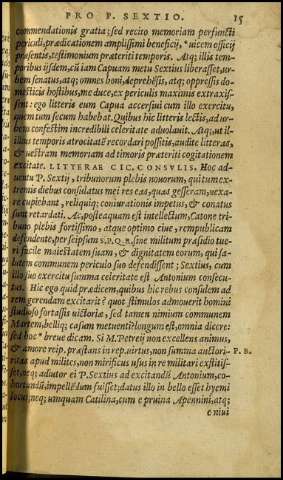 PRO P. SEXTIO. 15
commendationis gratia: sed recito memoriam perfuncti
periculi, prædicationem amplissimi beneficij, uicem officij
præsentis, testimonium præteriti temporis. Atq; illis tem-
poribus ijsdem, cū iam Capuam metu Sextius liberasset, ur-
bem senatus, atq; omnes boni, depræhēsis, atq; oppressis do-
mesticis hostibus, me duce, ex periculis maximis extraxis-
sent: ego litteris eum Capua accersiui cum illo exercitu,
quem tum secum habebat. Quibus hic litteris lectis, ad ur-
bem confestim incredibili celeritate aduolauit. Atq; ut il-
lius temporis atrocitatē recordari possitis, audite litteras,
& uestram memoriam ad timoris præteriti cogitationem
excitate. LITTERAE CIC. CONSVLIS. Hoc ad-
uentu P. Sextij, tribunorum plebis nouorum, qui tum ex-
tremis diebus consulatus mei res eas, quas gesseram, uexa-
re cupiebant, reliquiq; coniurationis impetus, & conatus
sunt retardati. Ac, posteaquam est intellectum, Catone tri-
buno plebis fortissimo, atque optimo ciue, rempublicam
defendente, per seipsum S.P.Q.R. sine militum præsidio tue-
ri facile maiestatem suam, & dignitatem eorum, qui sa-
lutem communem periculo suo defendissent; Sextius, cum
illo suo exercitu summa celeritate est Antonium consecu-
tus. Hic ego quid prædicem, quibus hic rebus consulem ad
rem gerendam excitarit? quot stimulos admouerit homini
studioso fortassis uictoriæ, sed tamen nimium communem
Martem, belliq; casum metuenti? longum est, omnia dicere:
sed hoc breue dicam. Si M. Petreij non excellens animus,
& amore reip. præstans in rep. uirtus, non summa auctori- P. B.
ritas apud milites, non mirificus usus in re militari extitis-
set, atq; adiutor ei P. Sextius ad excitandū Antonium, co-
hortandū, impellēdum fuisset; datus illo in bello esset hyemi
locus; neq; umquam Catilina, cum e pruina Apennini, atq;
e niui